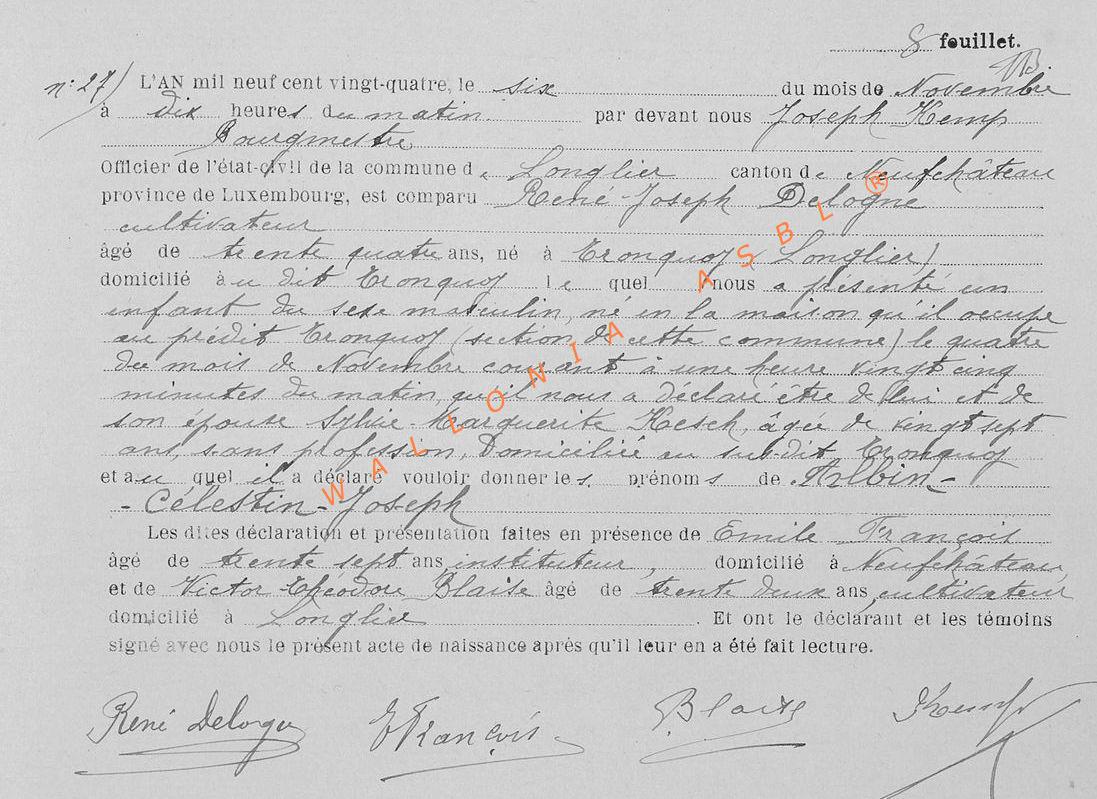 8 fouillet.
n° 27) L'AN mil neuf cent vingt-quatre, le six du mois de Novembre
à dix heures du matin par devant nous Joseph Kemp
Bourgmestre
Officier de l'état-civil de la commune de Longlier canton de Neufchâteau
province de Luxembourg, est comparu René-Joseph Delogne
cultivateur
âgé de trente quatre ans, né à Tronquoy (Longlier)
domicilié au dit Tronquoy lequel nous a présenté un
enfant du sexe masculin, né en la maison qu'il occupe
au prédit Tronquoy (section de cette commune) le quatre
du mois de Novembre courant à une heure vingt cinq
minutes du matin, qu'il nous a déclaré être de lui et de
son épouse Sylvie-Marguerite Kesch, âgée de vingt sept
ans, sans profession, Domiciliée au susdit Tronquoy
et auquel il a déclaré vouloir donner les prénoms de Albin-
- Célestin-Joseph
Les dites déclaration et présentation faites en présence de Emile François
âgé de trente sept ans, instituteur, domicilié à Neufchâteau
et de Victor Théodore Blaise âgé de trente deux ans, cultivateur
domicilié à Longlier. Et ont le déclarant et les témoins
signé avec nous le présent acte de naissance après qu'il leur en a été fait lecture.
René Delogne E François Blaise J Kemp
WALLONIA ASBL ®